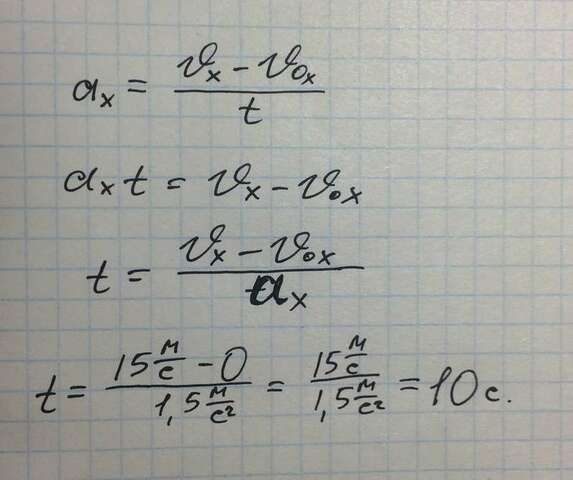 aₓ = (υₓ - υ₀ₓ) / t
aₓ t = υₓ - υ₀ₓ
t = (υₓ - υ₀ₓ) / aₓ
t = (15 м/с - 0) / (1,5 м/с²) = (15 м/с) / (1,5 м/с²) = 10 с.